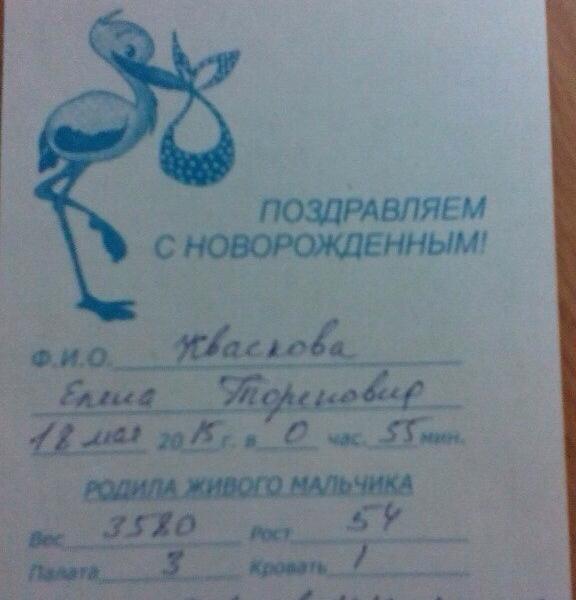 ПОЗДРАВЛЯЕМ
С НОВОРОЖДЕННЫМ!
Ф.И.О. Кваскова
Елена
18 мая 2015 г. в 0 час. 55 мин.
РОДИЛА ЖИВОГО МАЛЬЧИКА
Вес 3580 Рост 54
Палата 3 Кровать 1